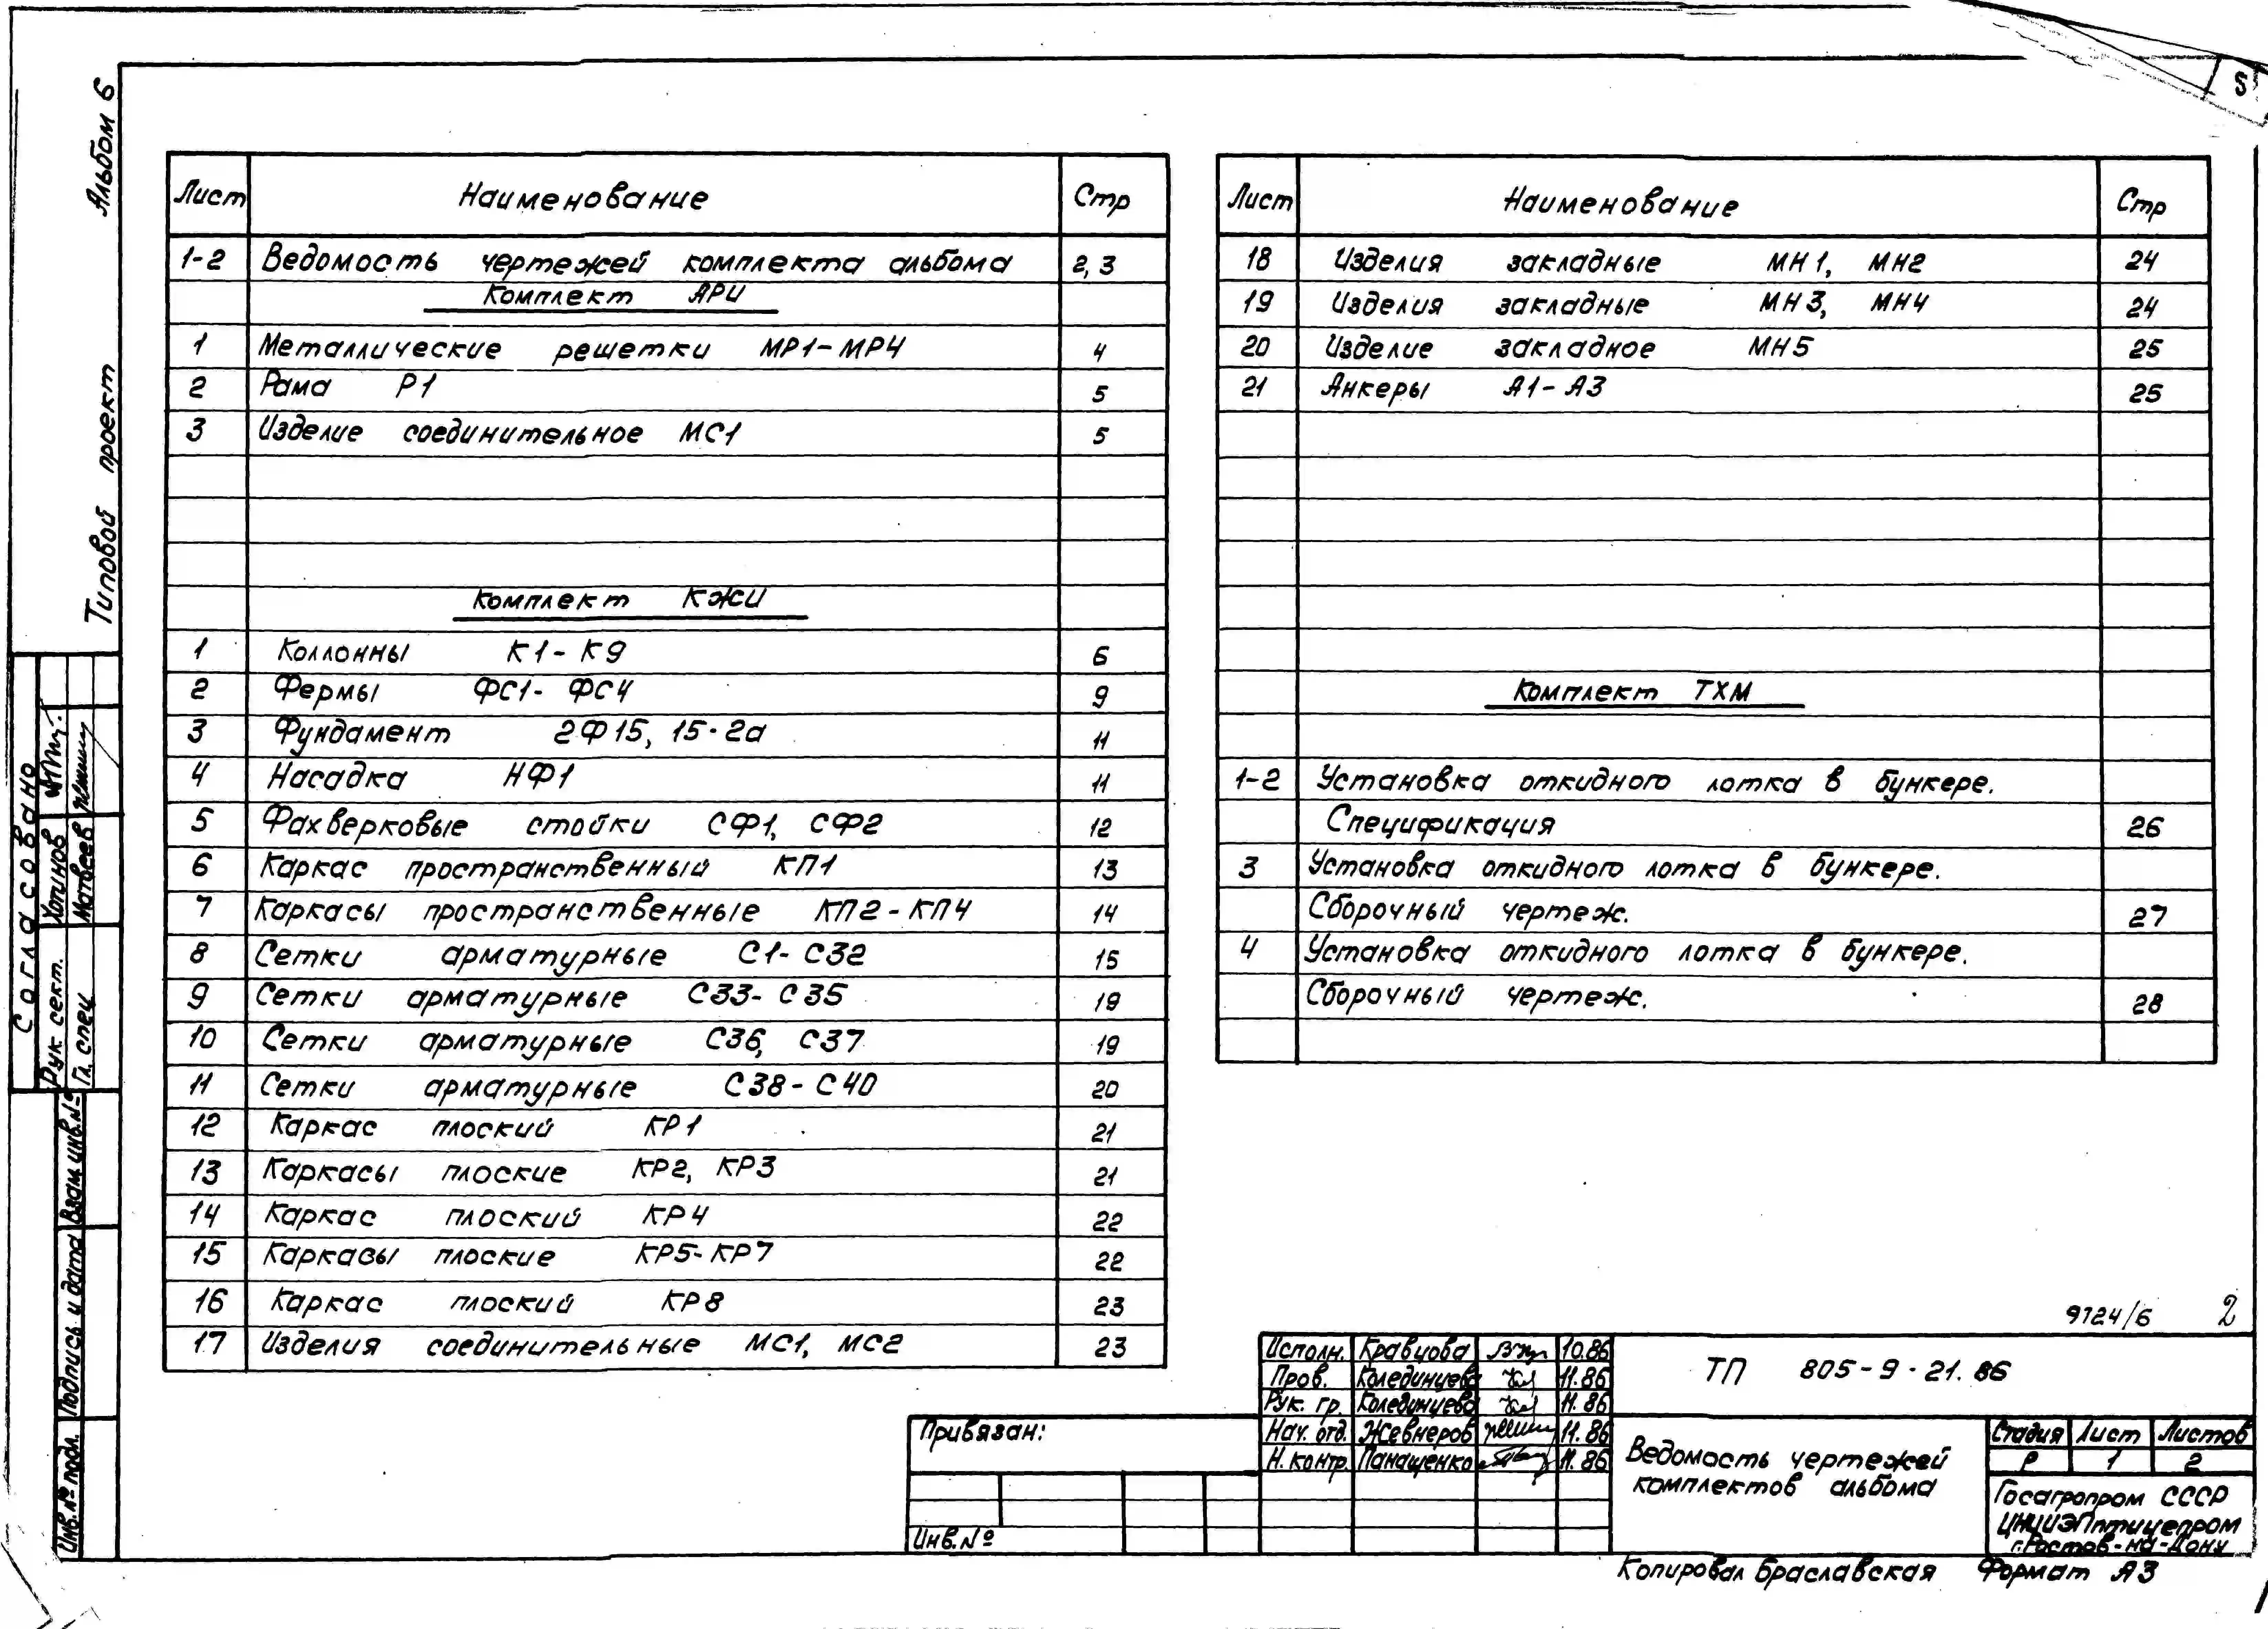 Альбом 6
Типовой проект
Лист Наименование Стр
1-2 Ведомость чертежей комплекта альбома 2,3
Комплект АРИ
1 Металлические решетки МР1-МР4 4
2 Рама Р1 5
3 Изделие соединительное МС1 5
Комплект КЖИ
1 Коллонны К1-К9 6
2 Фермы ФС1-ФС4 9
3 Фундамент 2Ф15, 15-2а 11
4 Насадка НФ1 11
5 Фахверковые стойки СФ1, СФ2 12
6 Каркас пространственный КП1 13
7 Каркасы пространственные КП2-КП4 14
8 Сетки арматурные С1-С32 15
9 Сетки арматурные С33-С35 19
10 Сетки арматурные С36, С37 19
11 Сетки арматурные С38-С40 20
12 Каркас плоский КР1 21
13 Каркасы плоские КР2, КР3 21
14 Каркас плоский КР4 22
15 Каркасы плоские КР5-КР7 22
16 Каркас плоский КР8 23
17 Изделия соединительные МС1, МС2 23
Лист Наименование Стр
18 Изделия закладные МН1, МН2 24
19 Изделия закладные МН3, МН4 24
20 Изделие закладное МН5 25
21 Анкеры А1-А3 25
Комплект ТХМ
1-2 Установка откидного лотка в бункере.
Спецификация 26
3 Установка откидного лотка в бункере.
Сборочный чертеж. 27
4 Установка откидного лотка в бункере.
Сборочный чертеж. 28
Согласовано
Рук. сект. Хотинов
Гл. спец Матвеев
Взам.инв.№
Подпись и дата
Инв.№ подл.
9724/6 2
Исполн. Кравцова 10.86
Пров. Колединцева 11.86
Рук. гр. Колединцева 11.86
Нач. отд. Жевнеров 11.86
Н.контр. Панащенко 11.86
ТП 805-9-21.86
Привязан:
Инв.№
Ведомость чертежей
комплектов альбома
Стадия Лист Листов
Р 1 2
Госагропром СССР
ЦНИИЭПптицепром
г.Ростов-на-Дону
Копировал Браславская Формат А3